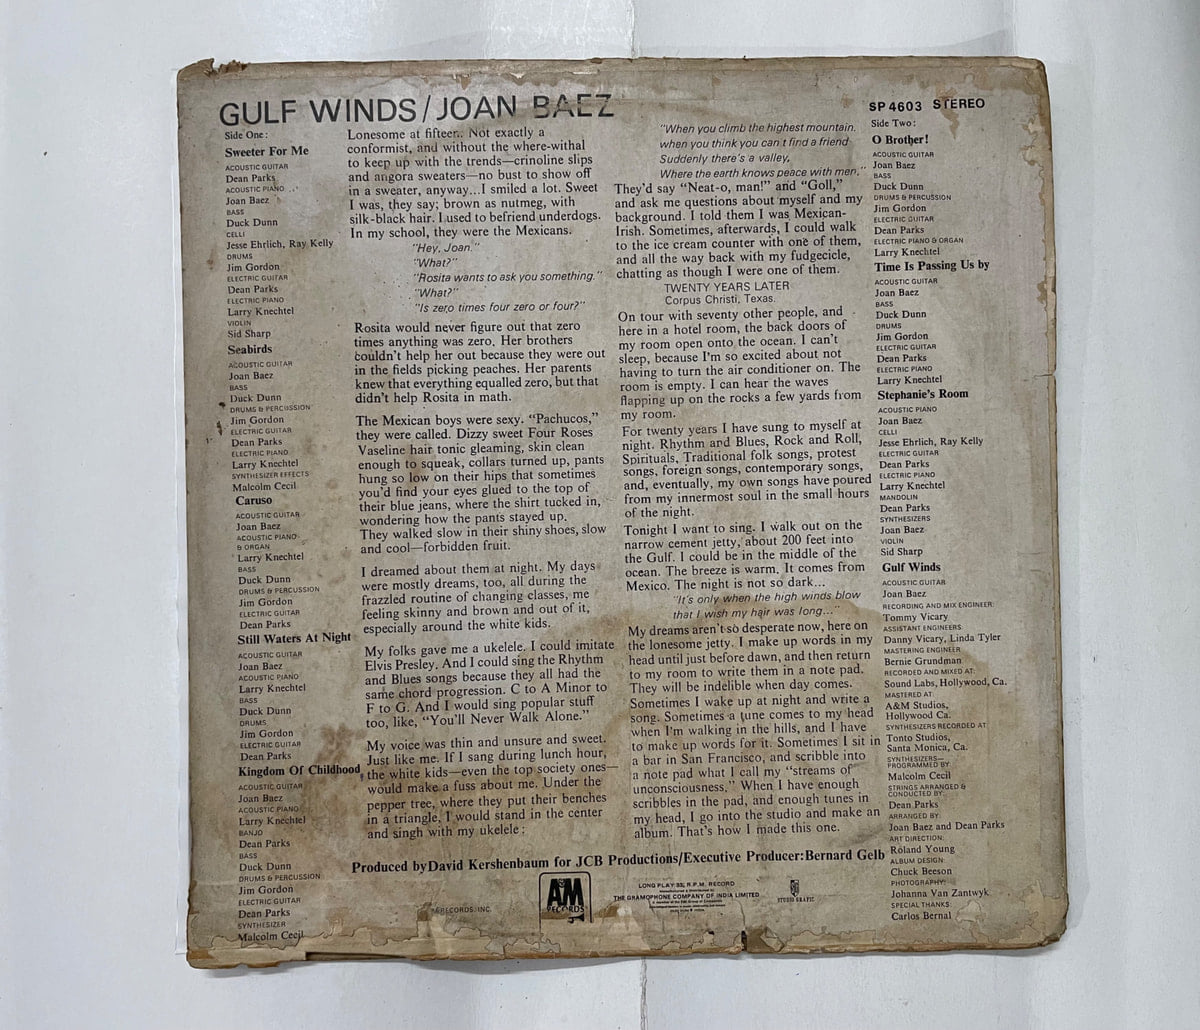 GULF WINDS/JOAN BAEZ
SP 4603 STEREO
Side One:
Sweeter For Me
ACOUSTIC GUITAR
Dean Parks
ACOUSTIC PIANO
Joan Baez
BASS
Duck Dunn
CELLI
Jesse Ehrlich, Ray Kelly
DRUMS
Jim Gordon
ELECTRIC GUITAR
Dean Parks
ELECTRIC PIANO
Larry Knechtel
VIOLIN
Sid Sharp
Seabirds
ACOUSTIC GUITAR
Joan Baez
BASS
Duck Dunn
DRUMS & PERCUSSION
Jim Gordon
ELECTRIC GUITAR
Dean Parks
ELECTRIC PIANO
Larry Knechtel
SYNTHESIZER EFFECTS
Malcolm Cecil
Caruso
ACOUSTIC GUITAR
Joan Baez
ACOUSTIC PIANO
& ORGAN
Larry Knechtel
BASS
Duck Dunn
DRUMS & PERCUSSION
Jim Gordon
ELECTRIC GUITAR
Dean Parks
Still Waters At Night
ACOUSTIC GUITAR
Joan Baez
ACOUSTIC PIANO
Larry Knechtel
BASS
Duck Dunn
DRUMS
Jim Gordon
ELECTRIC GUITAR
Dean Parks
Kingdom Of Childhood
ACOUSTIC GUITAR
Joan Baez
ACOUSTIC PIANO
Larry Knechtel
BANJO
Dean Parks
BASS
Duck Dunn
DRUMS & PERCUSSION
Jim Gordon
ELECTRIC GUITAR
Dean Parks
SYNTHESIZER
Malcolm Cecil
Lonesome at fifteen.. Not exactly a
conformist, and without the where-withal
to keep up with the trends—crinoline slips
and angora sweaters—no bust to show off
in a sweater, anyway...I smiled a lot. Sweet
I was, they say; brown as nutmeg, with
silk-black hair. I used to befriend underdogs.
In my school, they were the Mexicans.
"Hey, Joan."
"What?"
"Rosita wants to ask you something."
"What?"
"Is zero times four zero or four?"
Rosita would never figure out that zero
times anything was zero. Her brothers
couldn't help her out because they were out
in the fields picking peaches. Her parents
knew that everything equalled zero, but that
didn't help Rosita in math.
The Mexican boys were sexy. "Pachucos,"
they were called. Dizzy sweet Four Roses
Vaseline hair tonic gleaming, skin clean
enough to squeak, collars turned up, pants
hung so low on their hips that sometimes
you'd find your eyes glued to the top of
their blue jeans, where the shirt tucked in,
wondering how the pants stayed up.
They walked slow in their shiny shoes, slow
and cool—forbidden fruit.
I dreamed about them at night. My days
were mostly dreams, too, all during the
frazzled routine of changing classes, me
feeling skinny and brown and out of it,
especially around the white kids.
My folks gave me a ukelele. I could imitate
Elvis Presley. And I could sing the Rhythm
and Blues songs because they all had the
same chord progression. C to A Minor to
F to G. And I would sing popular stuff
too, like, "You'll Never Walk Alone."
My voice was thin and unsure and sweet.
Just like me. If I sang during lunch hour,
the white kids—even the top society ones—
would make a fuss about me. Under the
pepper tree, where they put their benches
in a triangle, I would stand in the center
and singh with my ukelele:
"When you climb the highest mountain.
when you think you can t find a friend
Suddenly there's a valley,
Where the earth knows peace with men."
They'd say "Neat-o, man!" and "Goll,"
and ask me questions about myself and my
background. I told them I was Mexican-
Irish. Sometimes, afterwards, I could walk
to the ice cream counter with one of them,
and all the way back with my fudgecicle,
chatting as though I were one of them.
TWENTY YEARS LATER
Corpus Christi, Texas.
On tour with seventy other people, and
here in a hotel room, the back doors of
my room open onto the ocean. I can't
sleep, because I'm so excited about not
having to turn the air conditioner on. The
room is empty. I can hear the waves
flapping up on the rocks a few yards from
my room.
For twenty years I have sung to myself at
night. Rhythm and Blues, Rock and Roll,
Spirituals, Traditional folk songs, protest
songs, foreign songs, contemporary songs,
and, eventually, my own songs have poured
from my innermost soul in the small hours
of the night.
Tonight I want to sing. I walk out on the
narrow cement jetty, about 200 feet into
the Gulf. I could be in the middle of the
ocean. The breeze is warm. It comes from
Mexico. The night is not so dark...
"It's only when the high winds blow
that I wish my hair was long..."
My dreams aren't so desperate now, here on
the lonesome jetty. I make up words in my
head until just before dawn, and then return
to my room to write them in a note pad.
They will be indelible when day comes.
Sometimes I wake up at night and write a
song. Sometimes a tune comes to my head
when I'm walking in the hills, and I have
to make up words for it. Sometimes I sit in
a bar in San Francisco, and scribble into
a note pad what I call my "streams of
unconsciousness." When I have enough
scribbles in the pad, and enough tunes in
my head, I go into the studio and make an
album. That's how I made this one.
Side Two:
O Brother!
ACOUSTIC GUITAR
Joan Baez
BASS
Duck Dunn
DRUMS & PERCUSSION
Jim Gordon
ELECTRIC GUITAR
Dean Parks
ELECTRIC PIANO & ORGAN
Larry Knechtel
Time Is Passing Us by
ACOUSTIC GUITAR
Joan Baez
BASS
Duck Dunn
DRUMS
Jim Gordon
ELECTRIC GUITAR
Dean Parks
ELECTRIC PIANO
Larry Knechtel
Stephanie's Room
ACOUSTIC PIANO
Joan Baez
CELLI
Jesse Ehrlich, Ray Kelly
ELECTRIC GUITAR
Dean Parks
ELECTRIC PIANO
Larry Knechtel
MANDOLIN
Dean Parks
SYNTHESIZERS
Joan Baez
VIOLIN
Sid Sharp
Gulf Winds
ACOUSTIC GUITAR
Joan Baez
RECORDING AND MIX ENGINEER:
Tommy Vicary
ASSISTANT ENGINEERS
Danny Vicary, Linda Tyler
MASTERING ENGINEER
Bernie Grundman
RECORDED AND MIXED AT:
Sound Labs, Hollywood, Ca.
MASTERED AT:
A&M Studios,
Hollywood Ca.
SYNTHESIZERS RECORDED AT
Tonto Studios,
Santa Monica, Ca.
SYNTHESIZERS—
PROGRAMMED BY
Malcolm Cecil
STRINGS ARRANGED &
CONDUCTED BY:
Dean Parks
ARRANGED BY:
Joan Baez and Dean Parks
ART DIRECTION:
Roland Young
ALBUM DESIGN:
Chuck Beeson
PHOTOGRAPHY:
Johanna Van Zantwyk
SPECIAL THANKS
Carlos Bernal
Produced by David Kershenbaum for JCB Productions/Executive Producer: Bernard Gelb
RECORDS, INC.
A&M
RECORDS
LONG PLAY 33⅓ R.P.M. RECORD
THE GRAMOPHONE COMPANY OF INDIA LIMITED
STUDIO GRAFIC